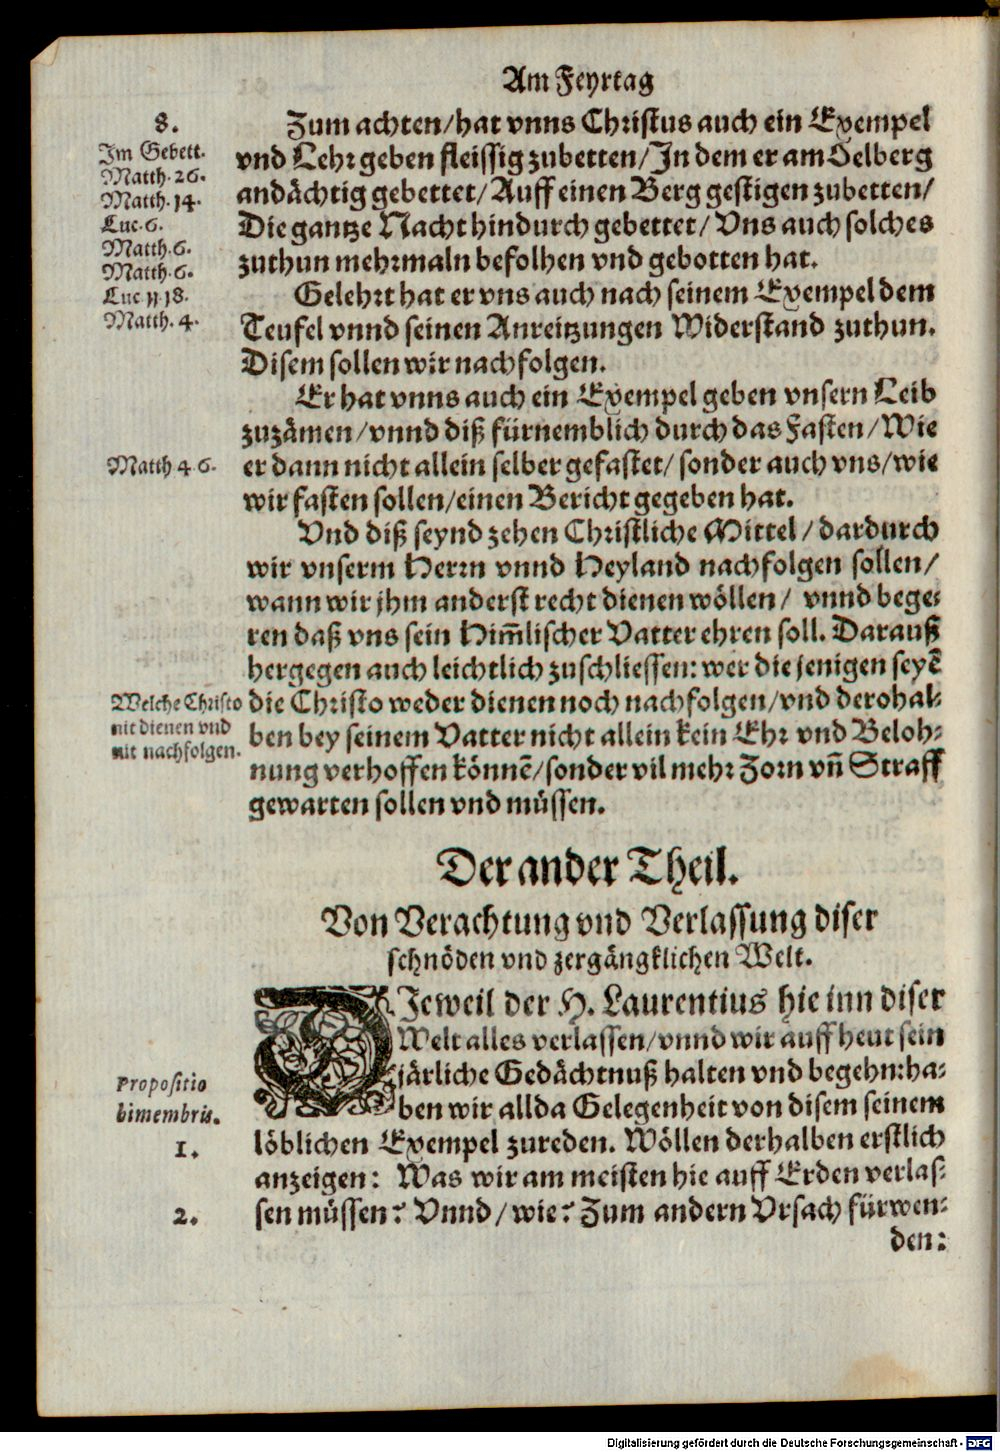 Am Feyrtag
8.
Im Gebett.
Matth. 26.
Matth. 14.
Luc. 6.
Matth. 6.
Matth. 6.
Luc 11 18.
Matth. 4.
Zum achten/hat vnns Christus auch ein Exempel
vnd Lehr geben fleissig zubetten/In dem er am Oelberg
andächtig gebettet/Auff einen Berg gestigen zubetten/
Die gantze Nacht hindurch gebettet/Vns auch solches
zuthun mehrmaln befolhen vnd gebotten hat.
Gelehrt hat er vns auch nach seinem Exempel dem
Teufel vnnd seinen Anreitzungen Widerstand zuthun.
Disem sollen wir nachfolgen.
Er hat vnns auch ein Exempel geben vnsern Leib
zuzämen/vnnd diß fürnemblich durch das Fasten/Wie
Matth 4. 6.
er dann nicht allein selber gefastet/sonder auch vns/wie
wir fasten sollen/einen Bericht gegeben hat.
Vnd diß seynd zehen Christliche Mittel/dardurch
wir vnserm Herrn vnnd Heyland nachfolgen sollen/
wann wir jhm anderst recht dienen wöllen/ vnnd bege-
ren daß vns sein Him̃lischer Vatter ehren soll. Darauß
hergegen auch leichtlich zuschliessen: wer die jenigen seyẽ
Welche Christo
nit dienen vnd
nit nachfolgen.
die Christo weder dienen noch nachfolgen/vnd derohal-
ben bey seinem Vatter nicht allein kein Ehr vnd Beloh-
nung verhoffen könnẽ/sonder vil mehr Zorn vñ Straff
gewarten sollen vnd müssen.
Der ander Theil.
Von Verachtung vnd Verlassung diser
schnöden vnd zergängklichen Welt.
DIeweil der H. Laurentius hie inn diser
Welt alles verlassen/vnnd wir auff heut sein
järliche Gedächtnuß halten vnd begehn: ha-
ben wir allda Gelegenheit von disem seinem
Propositio
bimembris.
1.
löblichen Exempel zureden. Wöllen derhalben erstlich
anzeigen: Was wir am meisten hie auff Erden verlas-
2.
sen müssen? Vnnd/wie? Zum andern Vrsach fürwen-
den:
Digitalisierung gefördert durch die Deutsche Forschungsgemeinschaft - DFG